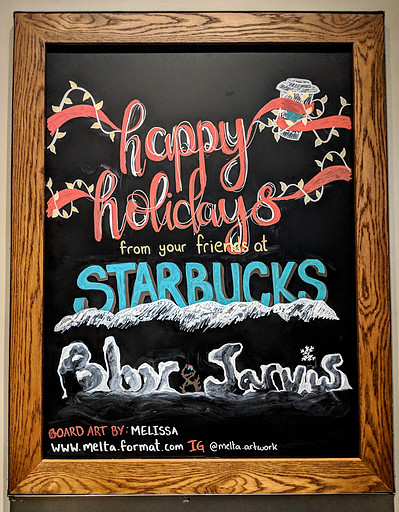 happy
holidays
from your friends at
STARBUCKS
Bloor & Jarvis
BOARD ART BY: MELISSA
www.melta.format.com IG @melta.artwork